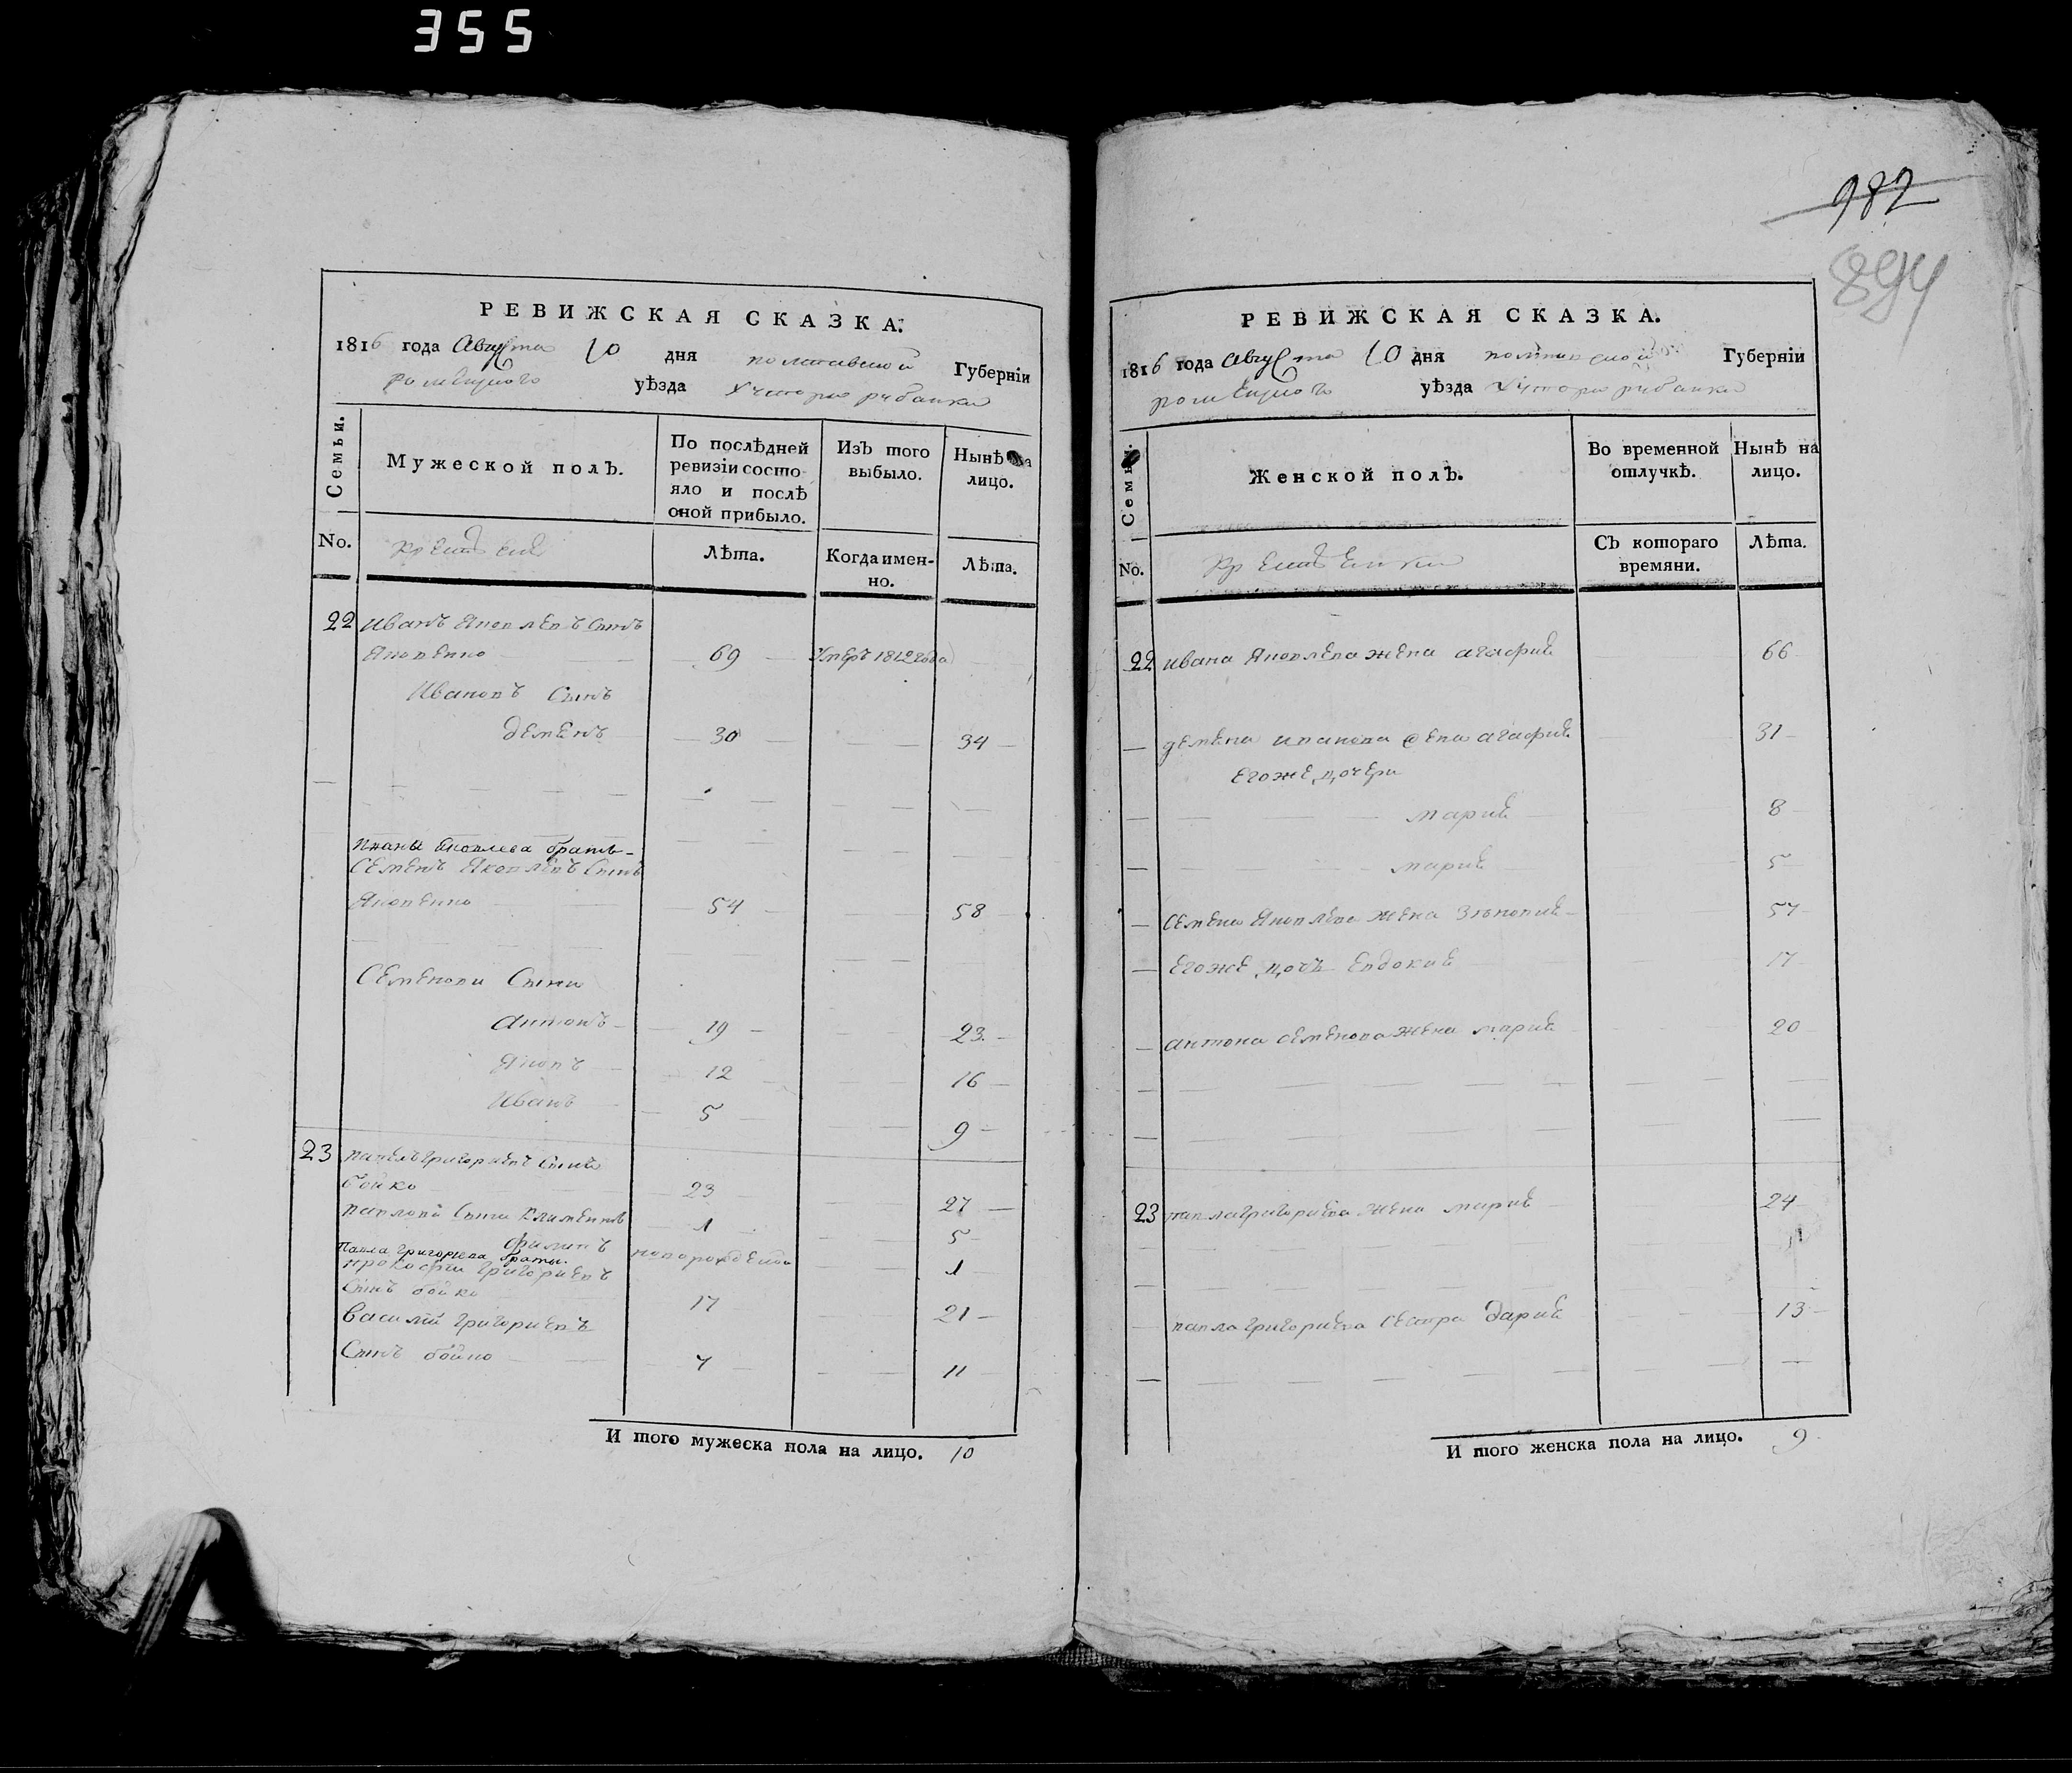 355
982
894
РЕВИЖСКАЯ СКАЗКА.
1816 года Августа 10 дня полтавской Губернїи
роменского уѣзда Хутора рибанки
Семьи.
Мужеской полЪ.
По послѣдней ревизїи состояло и послѣ оной прибыло.
ИзЪ того выбыло.
Нынѣ на лицо.
No.
Лѣта.
Когда именно.
Лѣта.
22 Иванъ Яковлевъ Сынъ
Яковенко 69 Умеръ 1812 года
Ивановъ Сынъ
деменъ 30 34
Ивана Яковлева братъ
Семенъ Яковлевъ Сынъ
Яковенко 54 58
Семенови Сыни
Антонъ 19 23
Яковъ 12 16
Иванъ 5 9
23 павелъ григориевъ Сынъ
бойко 23 27
павлови Сыни
филипъ 1 5
новорожденой 1
Павла григориева братья
прокофий григориевъ
Сынъ бойко 17 21
василий григориевъ
Сынъ бойко 7 11
И того мужеска пола на лицо. 10
РЕВИЖСКАЯ СКАЗКА.
1816 года Августа 10 дня полтавской Губернїи
роменского уѣзда Хутора рибанки
Женской полЪ.
Во временной отлучкѣ.
Нынѣ на лицо.
No.
СЪ котораго времяни.
Лѣта.
22 Ивана Яковлева жена агафия 66
демена иванова жена агафия 31
егоже дочери
мария 8
мария 5
Семена Яковлева жена 57
егоже дочь Евдокия 17
антона семенова жена мария 20
23 павла григориева жена мария 24
павла григориева сестра дария 13
И того женска пола на лицо. 9